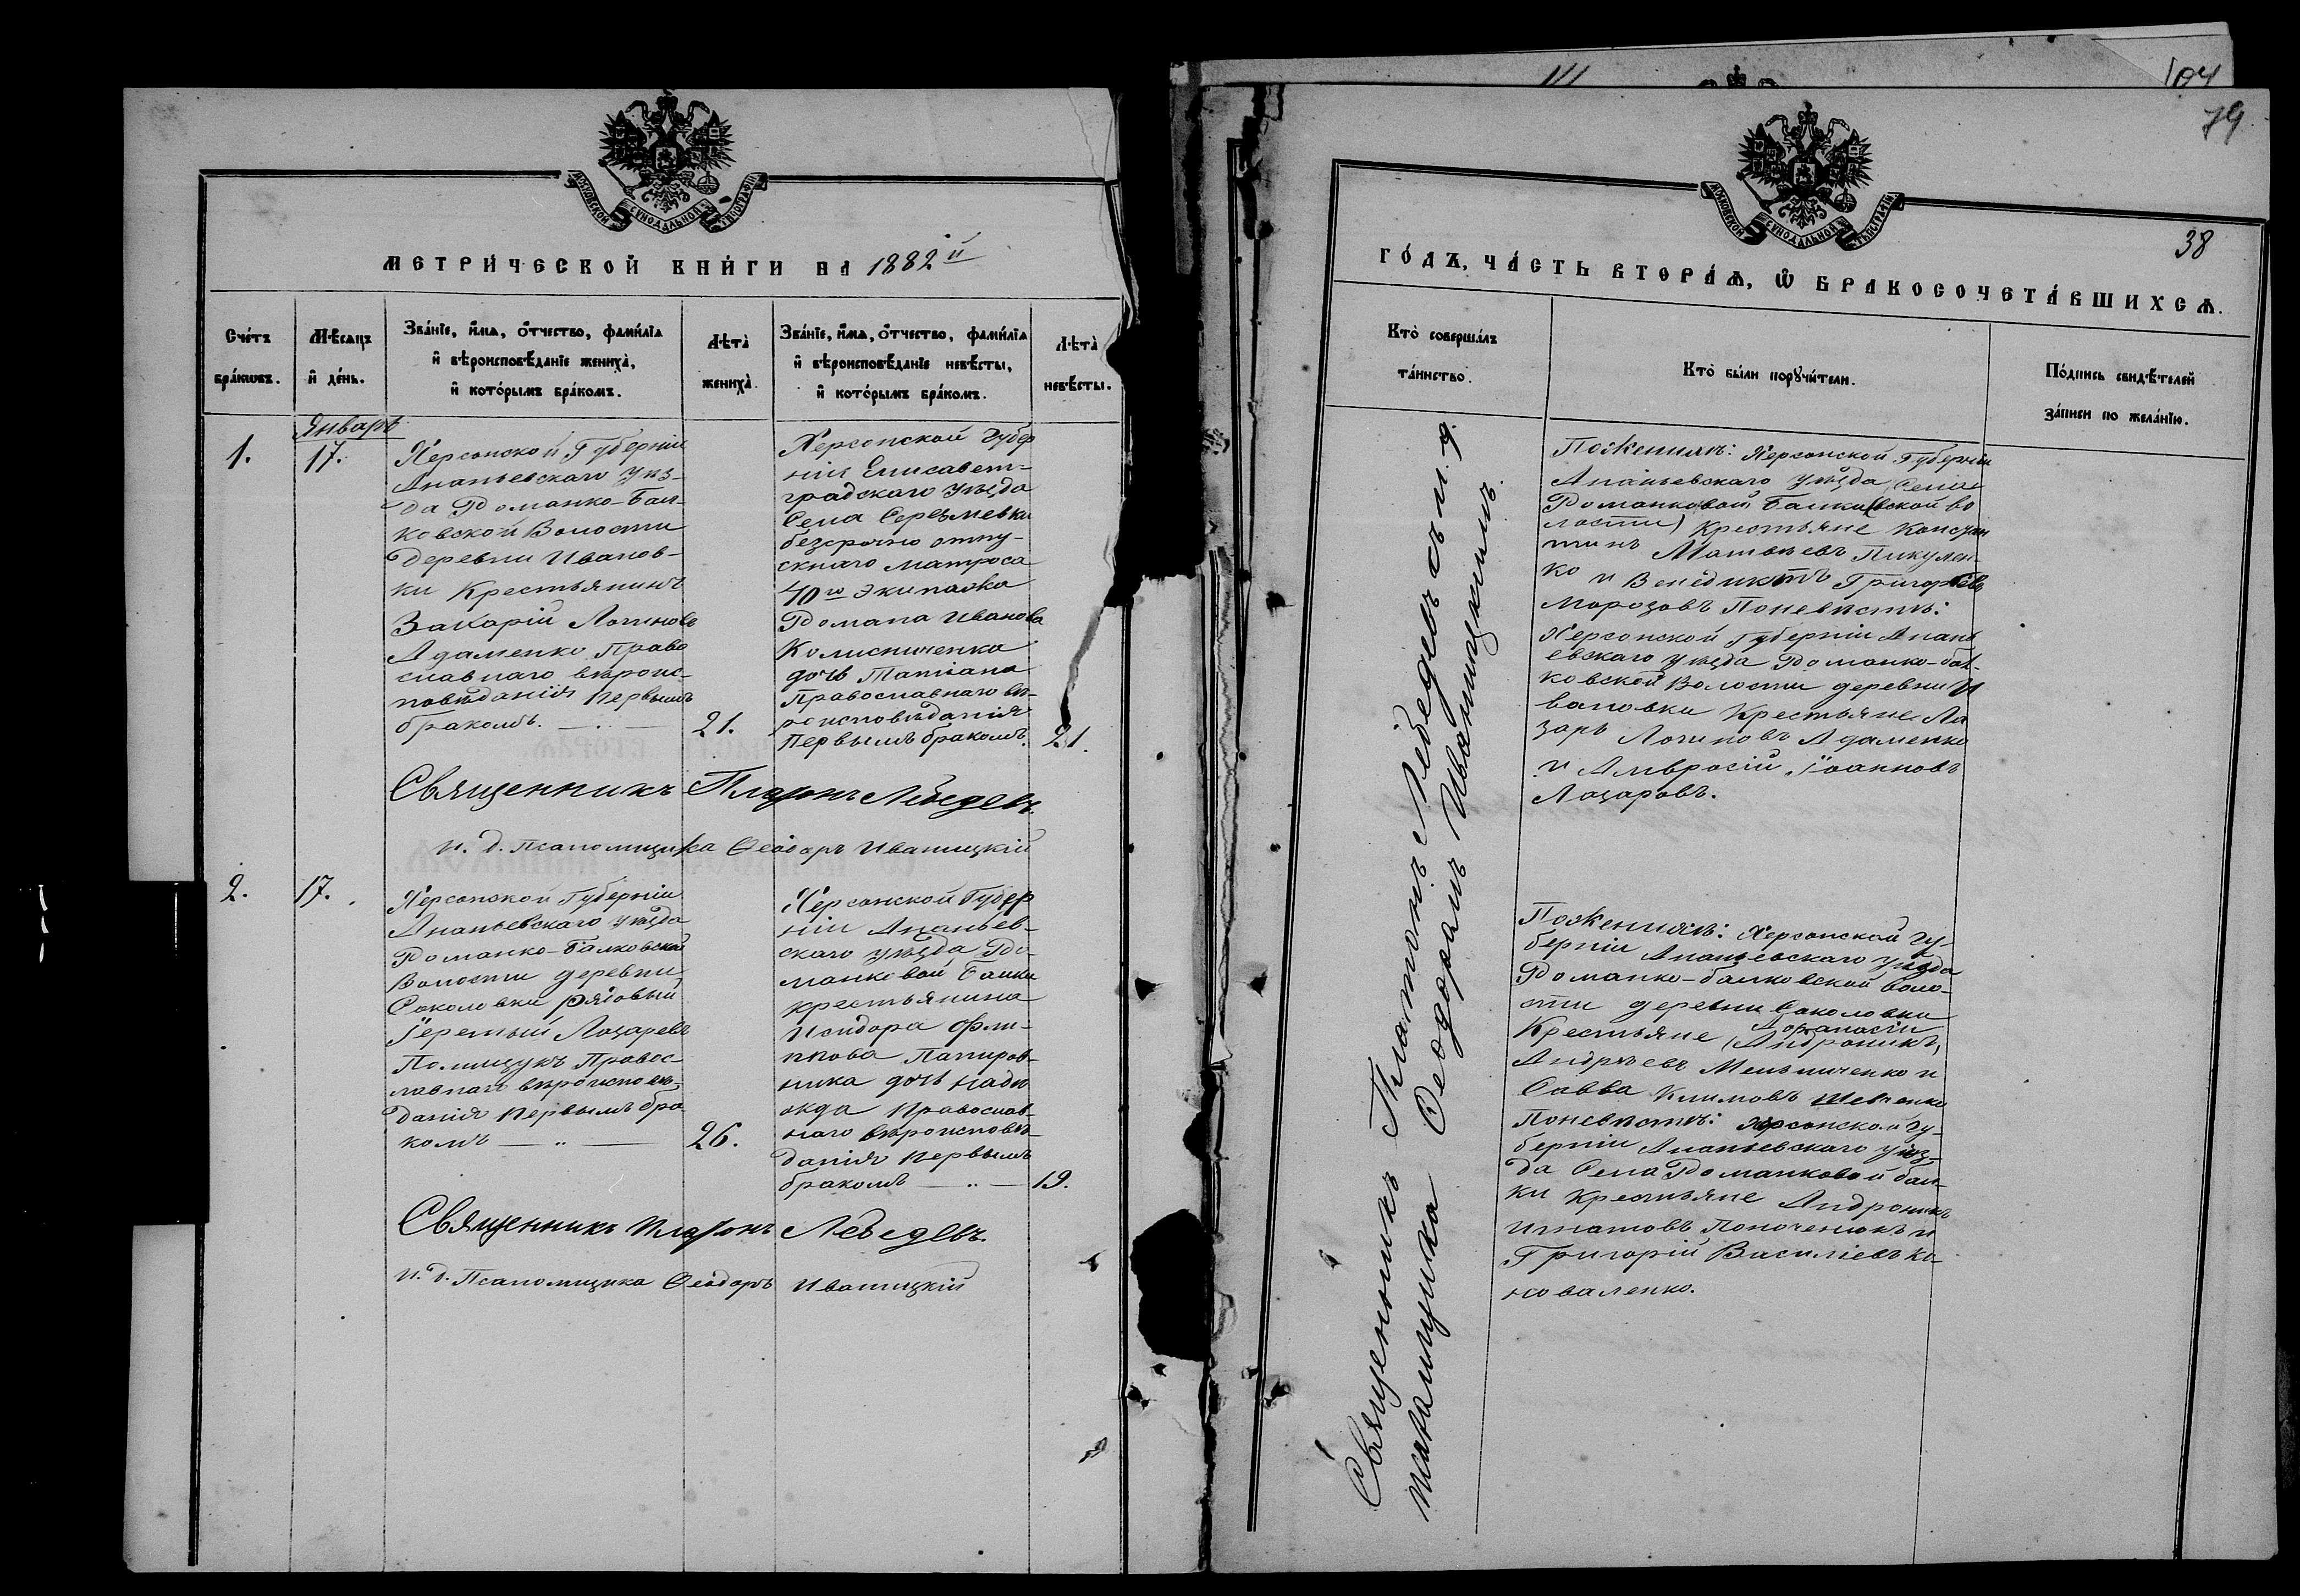 111
104
79
38
МОСКОВСКОЙ СѴНОДАЛЬНОЙ ТѴПОГРАФІИ
МЕТРИ́ЧЕСКОЙ КНИ́ГИ НА 1882й
Сче́тъ бра́кωвъ.
Мѣ́сяцъ и҆ де́нь.
Зва́нїе, и҆́мѧ, ѻ҆́тчество, фами́лїа
и҆ вѣроисповѣ́данїе жениха̀,
и҆ кото́рымъ бра́комъ.
Лѣта̀ жениха̀.
Зва́нїе, и҆́мѧ, ѻ҆́тчество, фами́лїа
и҆ вѣроисповѣ́данїе невѣ́сты,
и҆ кото́рымъ бра́комъ.
Лѣта̀ невѣ́сты.
Январь
1.
17.
Херсонской Губерніи
Ананьевскаго Уѣз-
да Романко-Бал-
ковской Волости
Деревни Иванов-
ки Крестьянинъ
Захарій Логиновъ
Адаменко Право
славнаго вѣроис-
повѣданія первымъ
бракомъ.
21.
Херсонской Губер
ніи Елисавет-
градскаго уѣзда
Села
безсрочно отпу-
скнаго матроса
40го экипажа
Романа Иванова
Колисниченка
дочь Татіана
Православнаго вѣ-
роисповѣданія
Первымъ бракомъ.
21.
Священникъ Платонъ Лебедевъ.
И. д. Псаломщика Ѳеодоръ Иваницкій
2.
17.
Херсонской Губерніи
Ананьевскаго уѣзда
Романко-Балковской
Волости деревни
Соколовки рядовый
Іеремый Лазаревъ
Полищукъ Правос-
лавнаго вѣроисповѣ-
данія Первымъ бра
комъ
26.
Херсонской Губер
ніи Ананьев-
скаго уѣзда Ро-
манковой Балки
крестьянина
Исидора Фили-
ппова Папиров-
ника дочь Наде
жда Православ-
наго вѣроисповѣ-
данія первымъ
бракомъ
19.
Священникъ Платонъ Лебедевъ.
И. д. Псаломщика Ѳеодоръ Иваницкій
МОСКОВСКОЙ СѴНОДАЛЬНОЙ ТѴПОГРАФІИ
ГО́ДЪ, ЧА́СТЬ ВТОРА́Ѧ, Ѽ БРАКОСОЧЕТА́ВШИХСѦ.
Кто̀ соверша́лъ
та́инство.
Кто̀ бы́ли порꙋчи́тели.
По́дпись свидѣ́телей
за́писи по жела́нїю.
Священникъ Платонъ Лебедевъ съ и. д.
псаломщика Ѳеодоромъ Иваницкимъ.
По Женихѣ: Херсонской Губерніи
Ананьевскаго уѣзда Села
Романковой Балки (вской во
лости) Крестьяне Констан
тинъ Матвѣевъ Пикулен
ко и Венедиктъ Григорьевъ
Морозовъ По невѣстѣ:
Херсонской Губерніи Анань
евскаго уѣзда Романко-бал-
ковской Волости деревни И
вановки Крестьяне Ла
зарь Логиновъ Адаменко
и Амвросій Іоанновъ
Лазаровъ.
По Женихѣ: Херсонской Гу-
берніи Ананьевскаго уѣзда
Романко-балковской воло-
сти деревни Соколовки
Аѳанасій
Крестьяне (Андроникъ)
Андреевъ Мельниченко и
Савва Климовъ Шевченко
По невѣстѣ: Херсонской Гу-
берніи Ананьевскаго уѣз-
да Села Романковой бал-
ки Крестьяне Андроникъ
Игнатовъ и
Григорій Василіевъ Ко-
новаленко.